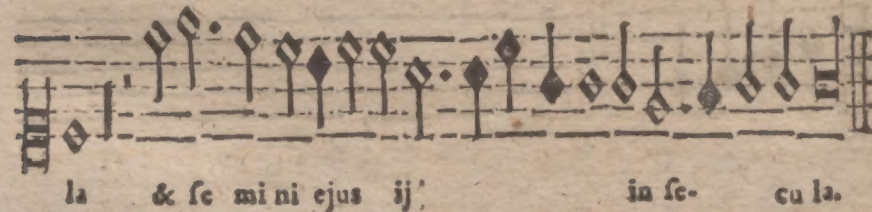 la & ſe mi ni ejus ij; in ſe- cu la.